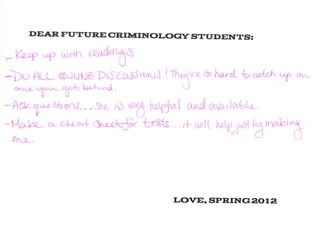 DEAR FUTURE CRIMINOLOGY STUDENTS:
- Keep up with readings
- DO ALL ONLINE DISCUSSIONS! They're so hard to catch up on
once you get behind.
- Ask questions... she is very helpful and available.
- Make a cheat sheet for tests... it will help just by making
one.
LOVE, SPRING 2012